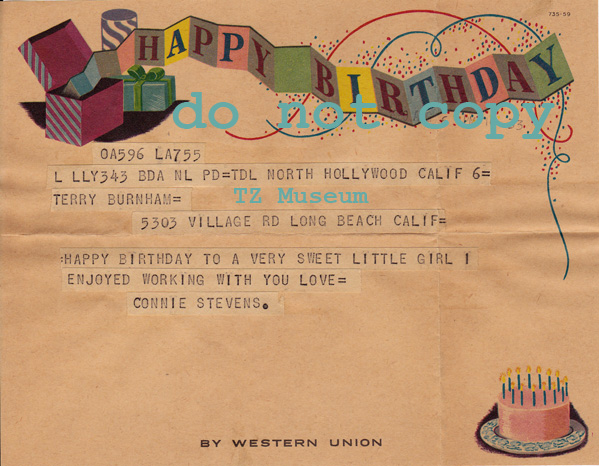 735-59
HAPPY BIRTHDAY
do not copy
OA596 LA755
L LLY343 BDA NL PD=TDL NORTH HOLLYWOOD CALIF 6=
TERRY BURNHAM=
TZ Museum
5303 VILLAGE RD LONG BEACH CALIF=
:HAPPY BIRTHDAY TO A VERY SWEET LITTLE GIRL I
ENJOYED WORKING WITH YOU LOVE=
CONNIE STEVENS.
BY WESTERN UNION